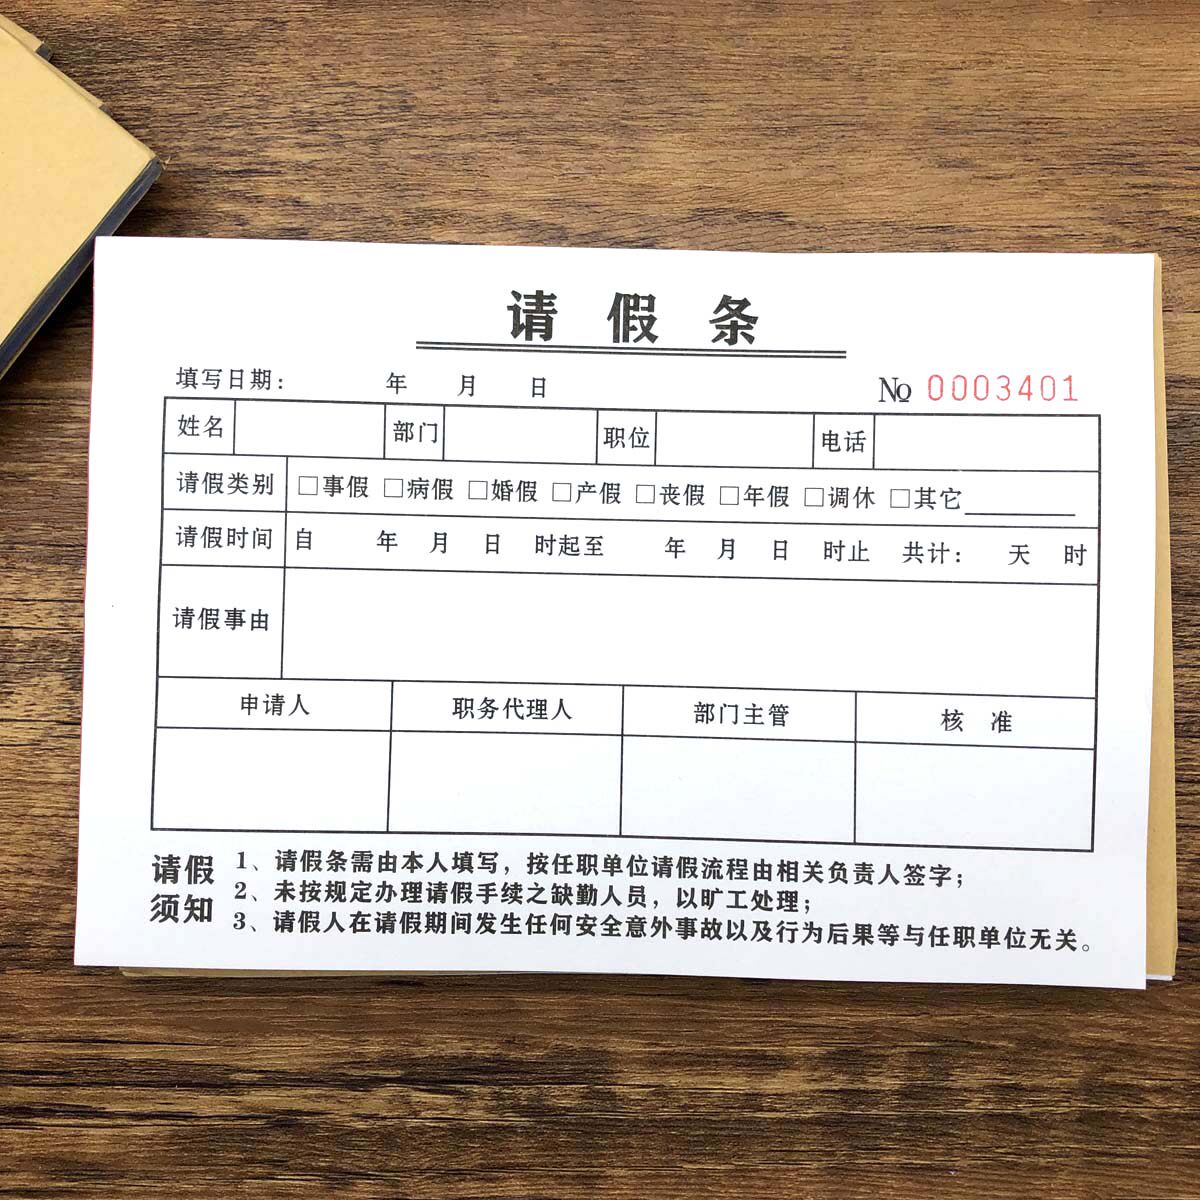 请假条
填写日期： 年 月 日 № 0003401
姓名 部门 职位 电话
请假类别 □事假 □病假 □婚假 □产假 □丧假 □年假 □调休 □其它
请假时间 自 年 月 日 时起至 年 月 日 时止 共计： 天 时
请假事由
申请人 职务代理人 部门主管 核准
请假须知
1、请假条需由本人填写，按任职单位请假流程由相关负责人签字；
2、未按规定办理请假手续之缺勤人员，以旷工处理；
3、请假人在请假期间发生任何安全意外事故以及行为后果等与任职单位无关。